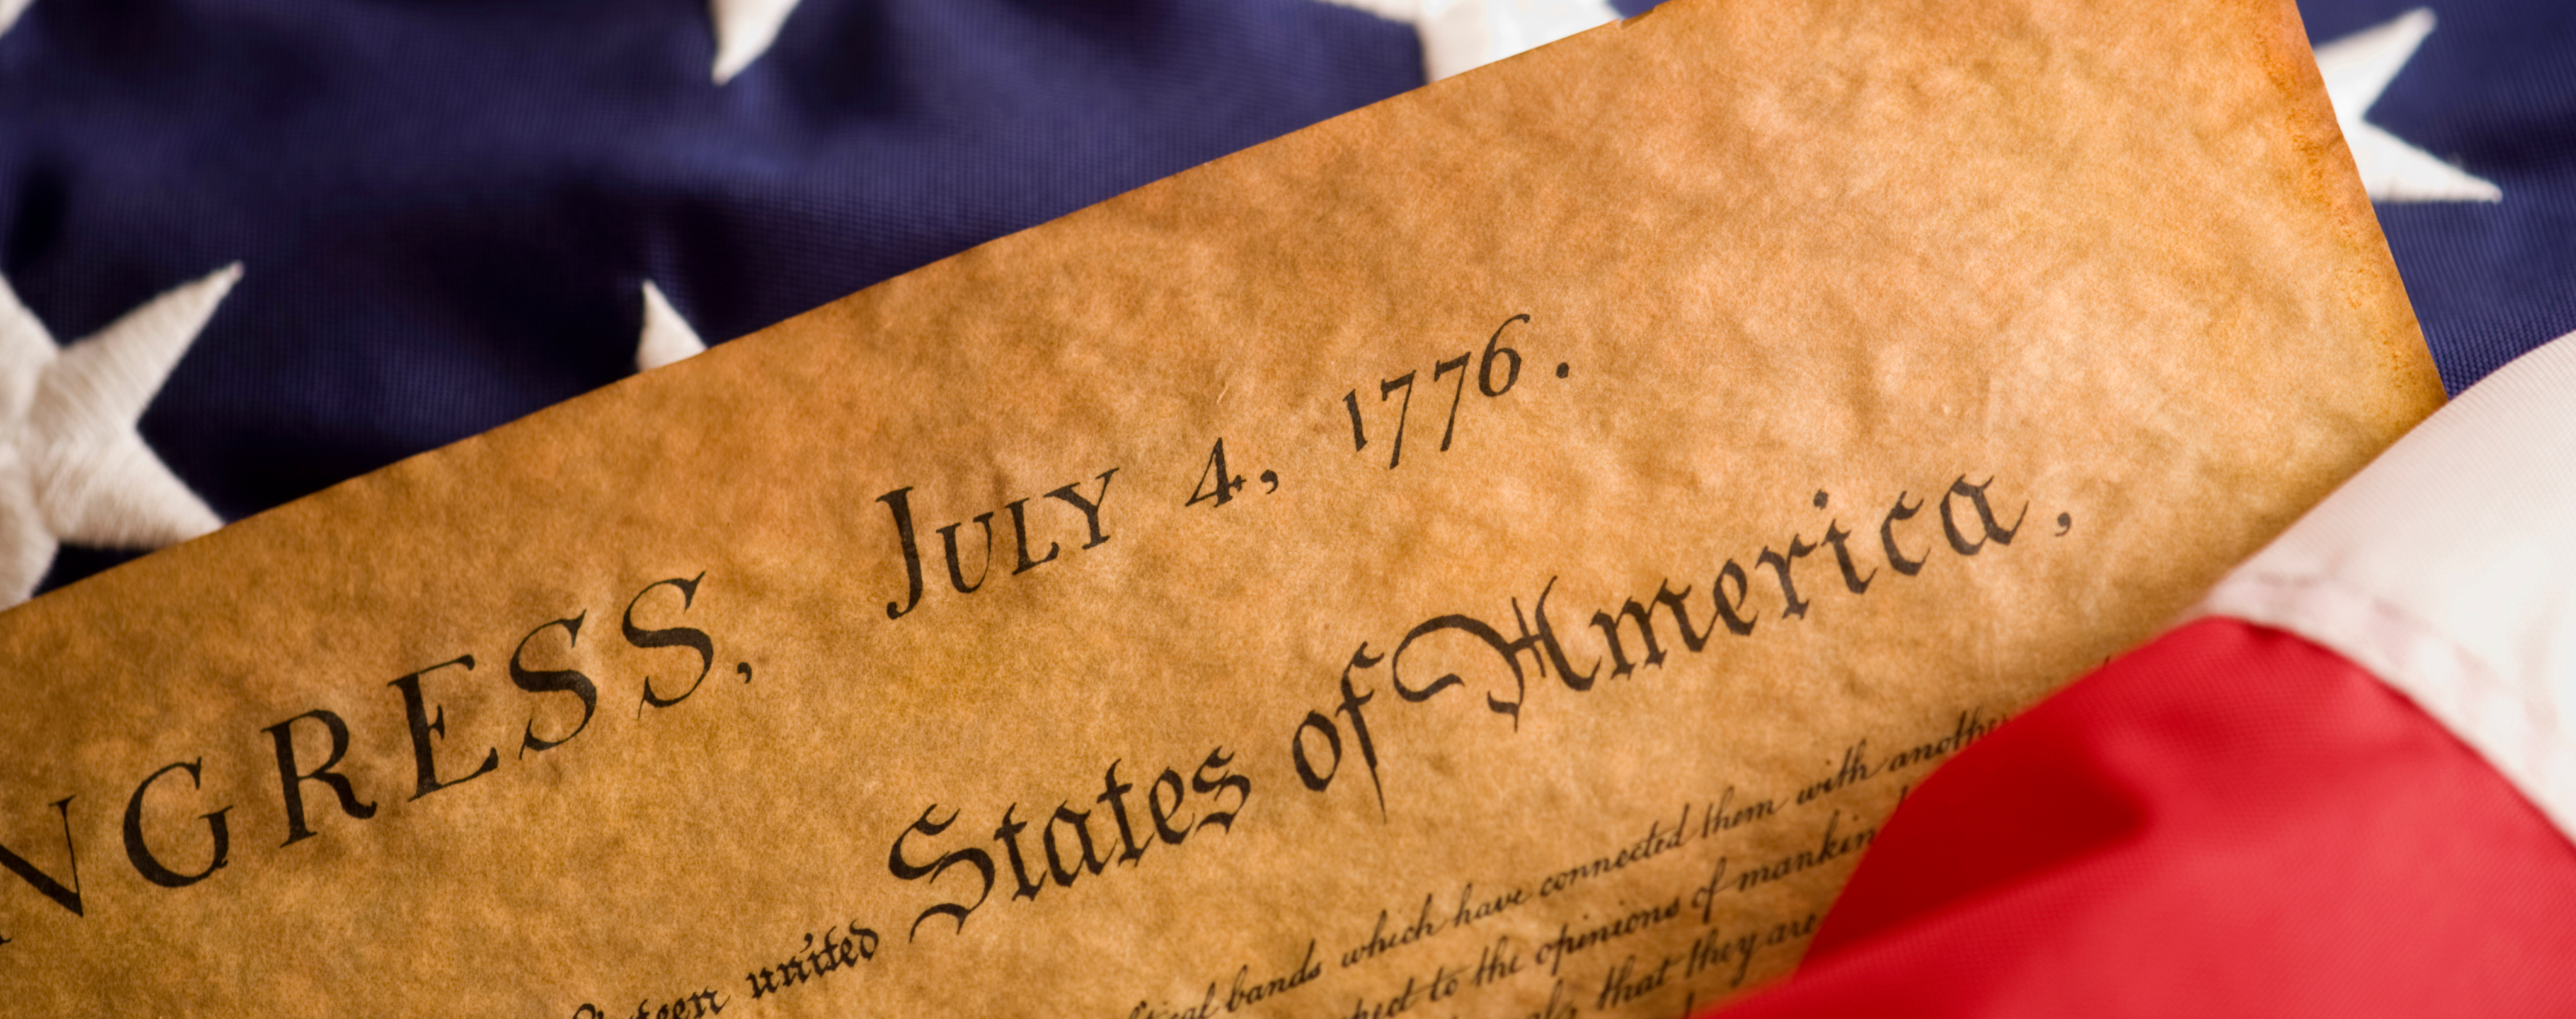 NGRESS, JULY 4, 1776.
teen united States of America,
tical bands which have connected them with anothe
pect to the opinions of mankin
that they are